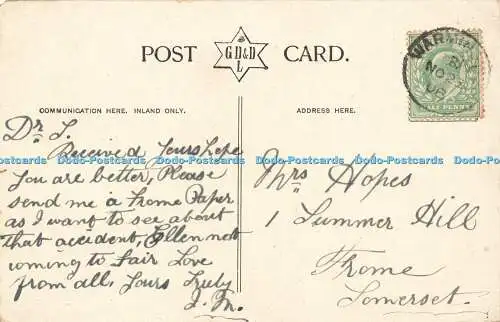 POST CARD.
G.D.&D
L
WARMIN
NO 2
06
HALF PENNY
COMMUNICATION HERE, INLAND ONLY.
ADDRESS HERE.
Dr S.
Received Yours hope
you are better, Please
send me a Frome Paper
as I want to see about
that accident, Ellen not
coming to Fair Love
from all, Yours Truly
J. M.
Mrs Hopes
1 Summer Hill
Frome
Somerset.
Dodo-Postcards Dodo-Postcards Dodo-Postcards Dodo-Postcards Dodo-Postcards Dodo-Postcards